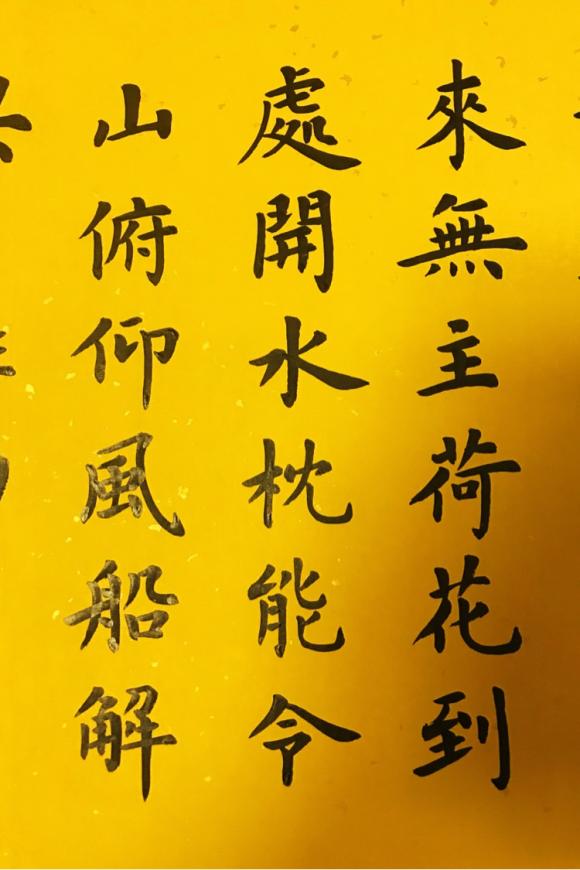 來無主荷花到
處開水枕能令
山俯仰風船解